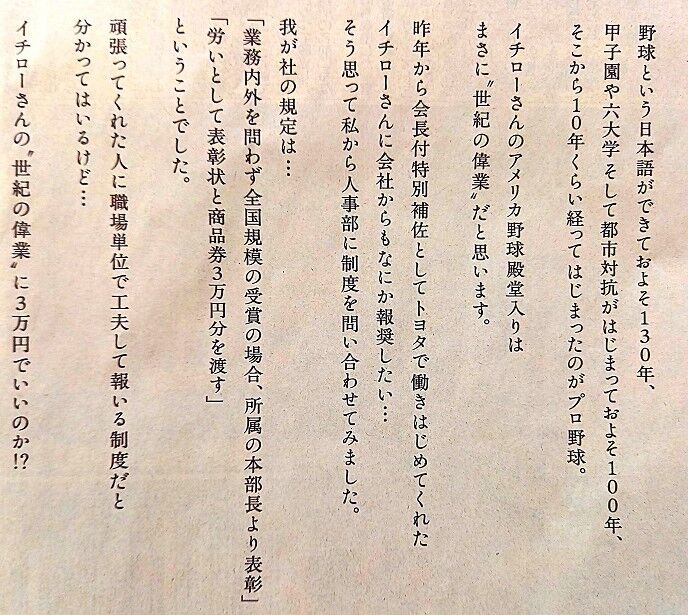 野球という日本語ができておよそ130年、
甲子園や六大学そして都市対抗がはじまっておよそ100年、
そこから10年くらい経ってはじまったのがプロ野球。
イチローさんのアメリカ野球殿堂入りは
まさに〝世紀の偉業〟だと思います。
昨年から会長付特別補佐としてトヨタで働きはじめてくれた
イチローさんに会社からもなにか報奨したい…
そう思って私から人事部に制度を問い合わせてみました。
我が社の規定は…
「業務内外を問わず全国規模の受賞の場合、所属の本部長より表彰」
「労いとして表彰状と商品券3万円分を渡す」
ということでした。
頑張ってくれた人に職場単位で工夫して報いる制度だと
分かってはいるけど…
イチローさんの〝世紀の偉業〟に3万円でいいのか!?